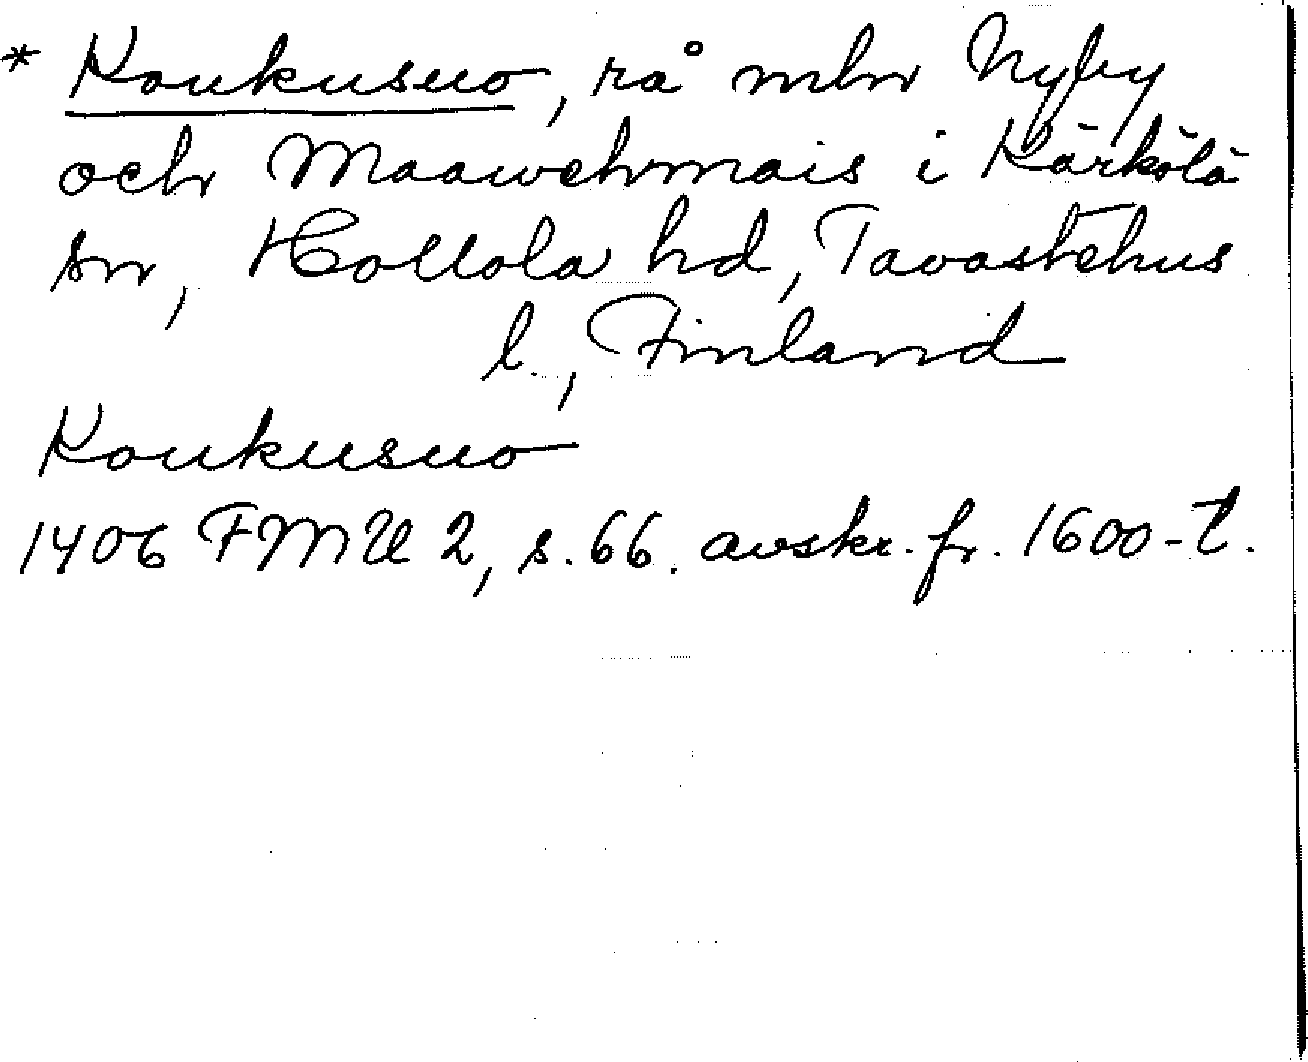 * Koukusuo, rå mln Nyby
och Maawehmais i Kärkölä
sn, Hollola hd, Tavastehus
l., Finland
Koukusuo
1406 FMU 2, s. 66. avskr. fr. 1600-t.